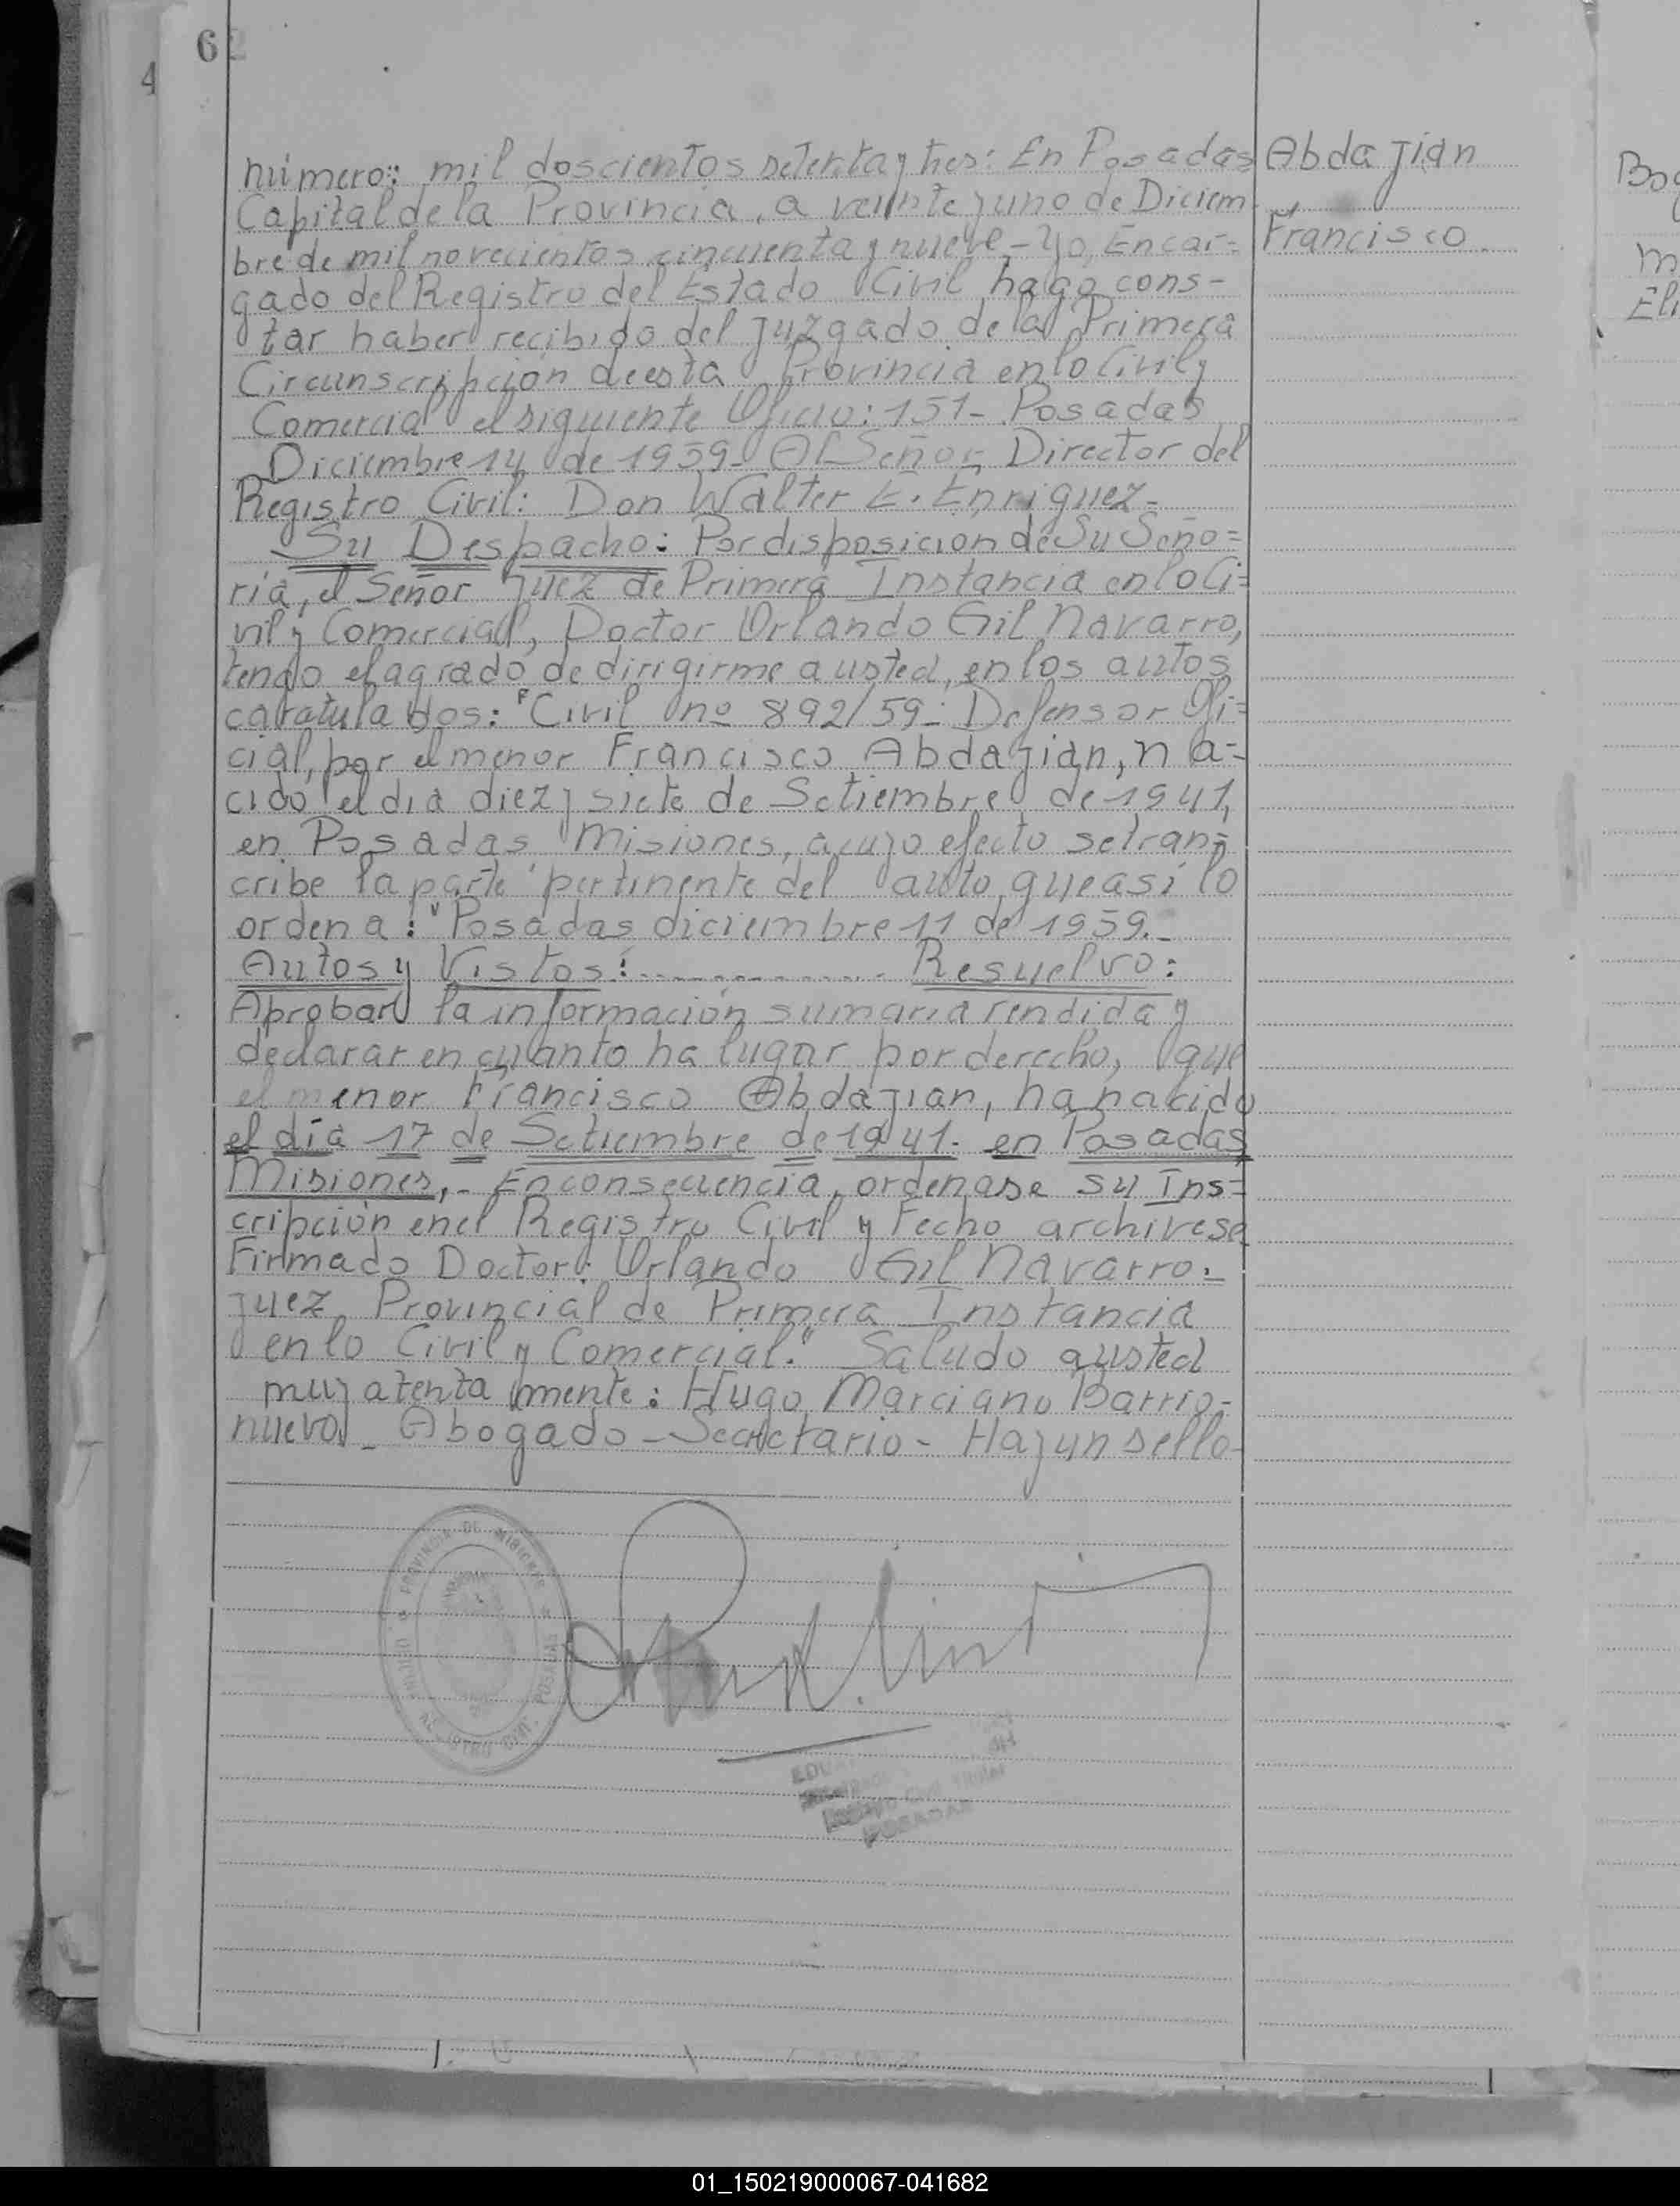 62
4
número: mil doscientos setenta y tres: En Posadas
Capital de la Provincia, a veinte y uno de Diciem
bre de mil novecientos cincuenta y nueve - Yo, Encar=
gado del Registro del Estado Civil hago cons-
tar haber recibido del Juzgado de la Primera
Circunscripción de esta Provincia en lo Civil y
Comercial el siguiente Oficio: 151- Posadas
Diciembre 14 de 1959- Al Señor Director del
Registro Civil: Don Walter E. Enriquez-
Su Despacho: Por disposicion de Su Seño=
ría, el Señor Juez de Primera Instancia en lo Ci=
vil y Comercial, Doctor Orlando Gil Navarro,
tengo el agrado de dirigirme a usted, en los autos
caratulados: "Civil nº 892/59- Defensor Ofi=
cial, por el menor Francisco Abdajian, na-
cido el dia diez y siete de Setiembre de 1941,
en Posadas Misiones, a cuyo efecto se trans=
cribe la parte pertinente del auto que así lo
ordena: "Posadas diciembre 11 de 1959.-
Autos y Vistos:.............. Resuelvo:
Aprobar la información sumaria rendida y
declarar en cuanto ha lugar por derecho, que
el menor Francisco Abdajian, ha nacido
el día 17 de Setiembre de 1941. en Posadas
Misiones,.- En consecuencia, ordenase su Ins=
cripción en el Registro Civil y Fecho archivese
Firmado Doctor: Orlando Gil Navarro.-
Juez Provincial de Primera Instancia
en lo Civil y Comercial." Saludo a usted
muy atentamente: Hugo Marciano Barrio-
nuevo - Abogado - Secretario - Hay un sello-
Abdajian
Francisco.
PROVINCIA DE MISIONES
POSADAS
POSADAS
Bog
m
Eli
01_150219000067-041682